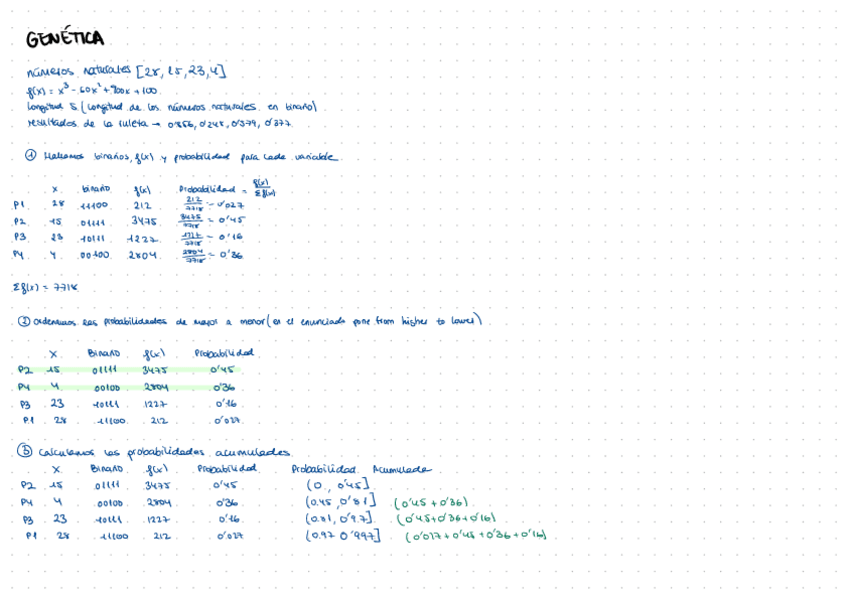 GENÉTICA
números naturales [28, 15, 23, 4]
f(x) = x³ - 60x² + 900x + 100
longitud 5 (longitud de los números naturales en binario)
resultados de la ruleta → 0'856, 0'248, 0'379, 0'377
① Hallamos binarios, f(x) y probabilidad para cada variable
x binario f(x) Probabilidad = f(x)/Σf(x)
P1 28 11100 212 212/7718 = 0'027
P2 15 01111 3475 3475/7718 = 0'45
P3 23 10111 1227 1227/7718 = 0'16
P4 4 00100 2804 2804/7718 = 0'36
Σf(x) = 7718
② Ordenamos las probabilidades de mayor a menor (en el enunciado pone from higher to lower)
X Binario f(x) Probabilidad
P2 15 01111 3475 0'45
P4 4 00100 2804 0'36
P3 23 10111 1227 0'16
P1 28 11100 212 0'027
③ Calculamos las probabilidades acumuladas
X Binario f(x) Probabilidad Probabilidad Acumulada
P2 15 01111 3475 0'45 (0, 0'45]
P4 4 00100 2804 0'36 (0.45, 0'81] (0'45 + 0'36)
P3 23 10111 1227 0'16 (0.81, 0'97] (0'45+0'36+0'16)
P1 28 11100 212 0'027 (0.97 0'997] (0'027+0'45+0'36+0'16)